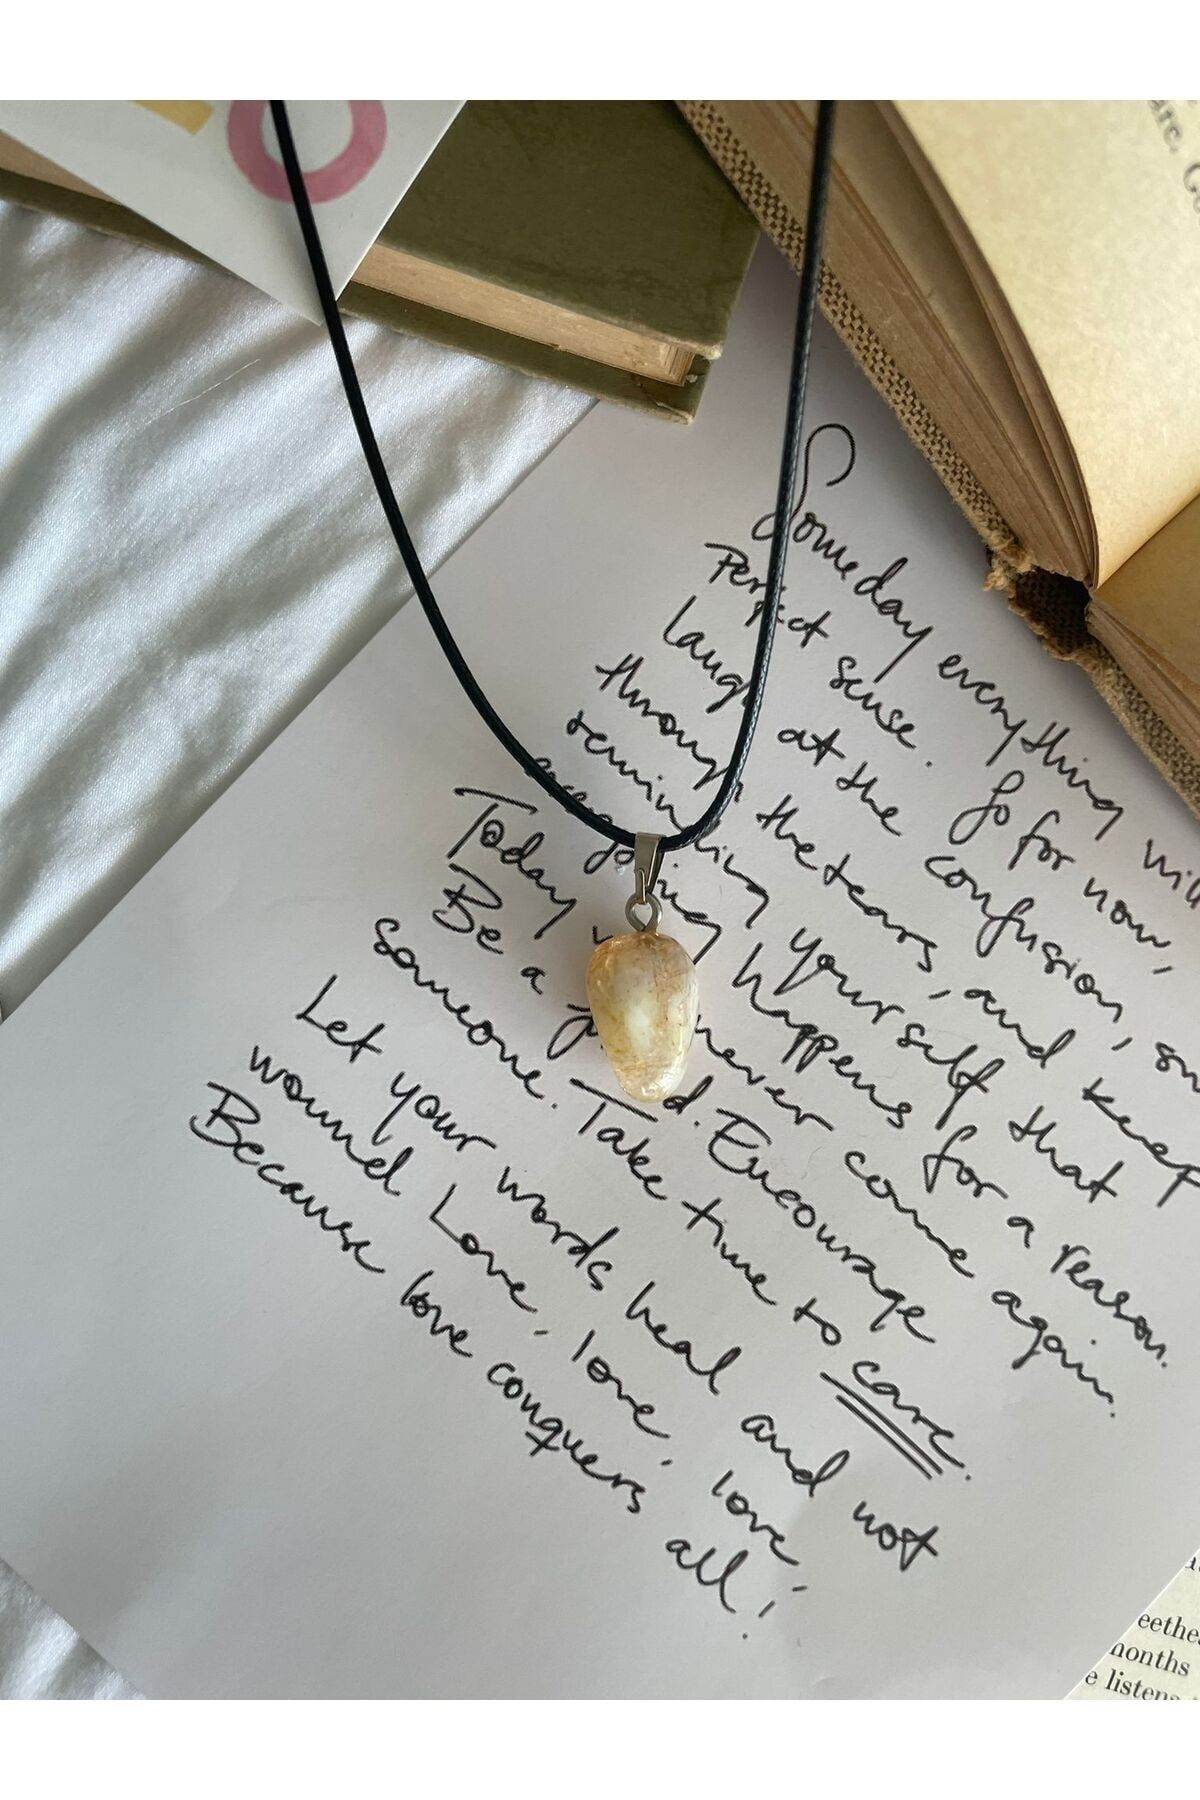 Someday everything will
Perfect sense. So for now,
laugh at the confusion,
through the tears, and keep
reminding yourself that
happens for a reason.
Today never come again.
Be a Encourage
someone. Take time to care.
Let your words heal and not
wound Love, love, love!
Because love conquers all!
months